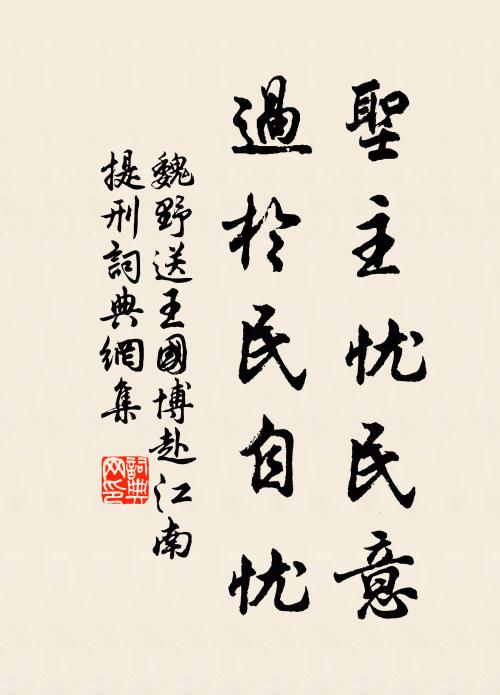 聖主忧民意
過於民自忧
魏野送王國博赴江南
提刑詞典網集
詞典网印